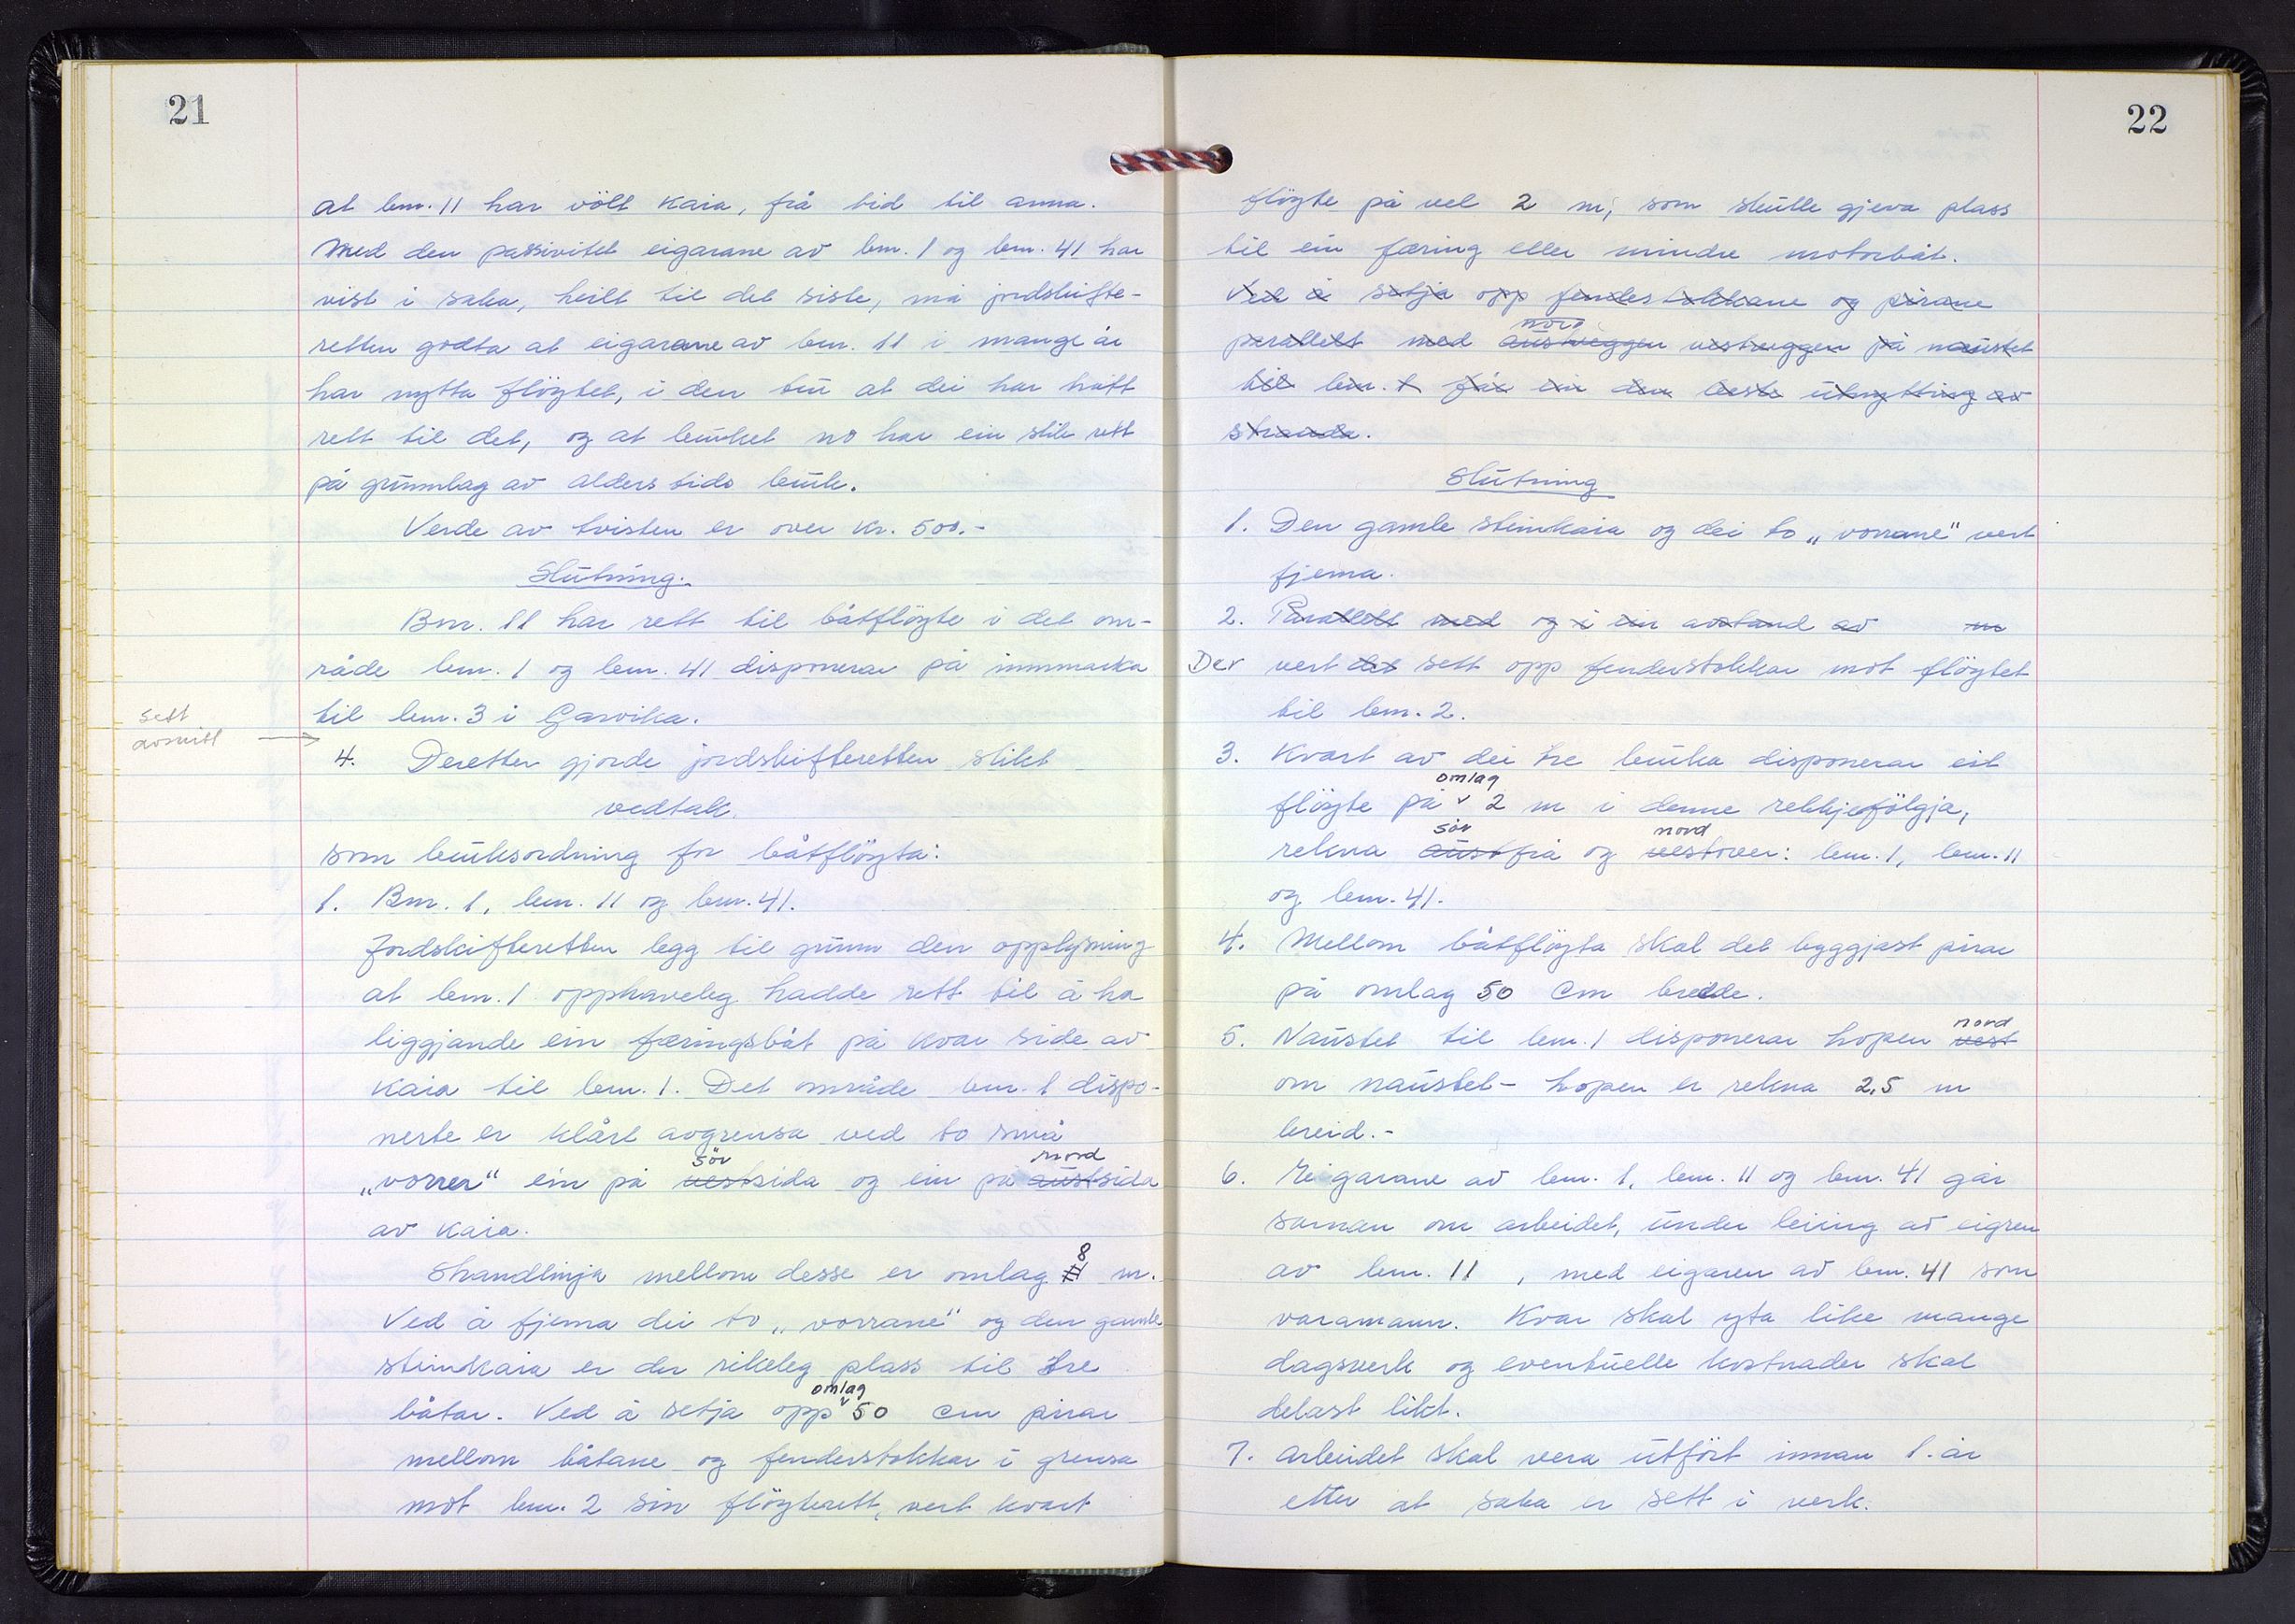 21
at bnr. 11 har völt kaia, frå tid til anna.
Med den passivitet eigarane av bnr. 1 og bnr. 41 har
vist i saka, heilt til det siste, må jordskifte-
retten godta at eigarane av bnr. 11 i mange år
har nytta flöytet, i den tru at dei har hatt
rett til det, og at bruket no har ein slik rett
på grunnlag av alders tids bruk.
Verde av tvisten er over kr. 500.-
Slutning.
Bnr. 11 har rett til båtflöyte i det om-
råde bnr. 1 og bnr. 41 disponerar på innmarka
til bnr. 3 i Garvika.
sett
avsnitt
4. Deretter gjorde jordskifteretten slikt
vedtak.
som bruksordning for båtflöyta:
1. Bnr. 1, bnr. 11 og bnr. 41.
Jordskifteretten legg til grunn den opplysning
at bnr. 1 opphaveleg hadde rett til å ha
liggjande ein færingsbåt på kvar side av
kaia til bnr. 1. Det område bnr. 1 dispo-
nerte er klårt avgrensa ved to små
sör nord
„vorrer" ein på vestsida og ein på austsida
av kaia.
8
Strandlinja mellom desse er omlag m.
Ved å fjerna dei to „vorrane" og den gamle
steinkaia er der rikeleg plass til tre
omlag
båtar. Ved å setja opp 50 cm pirar
mellom båtane og fenderstokkar i grensa
mot bnr. 2 sin flöyterett, vert kvart
22
flöyte på vel 2 m, som skulle gjeva plass
til ein færing eller mindre motorbåt.
Ved å setja opp fenderstokkane og pirane
nord
parallelt med austveggen vestveggen på naustet
til bnr. 1 får ein den beste utnytting av
stranda.
Slutning
1. Den gamle steinkaia og dei to „vorrane" vert
fjerna.
2. Parallelt med og i ein avstand av m
Der vert det sett opp fenderstokkar mot flöytet
til bnr. 2.
3. Kvart av dei tre bruka disponerar eit
omlag
flöyte på 2 m i denne rekkjefölgja,
sör nord
rekna austfrå og vestover: bnr. 1, bnr. 11
og bnr. 41.
4. Mellom båtflöyta skal det byggjast pirar
på omlag 50 cm bredde.
nord
5. Naustet til bnr. 1 disponerar hopen vest
om naustet - hopen er rekna 2,5 m
breid.-
6. Eigarane av bnr. 1, bnr. 11 og bnr. 41 går
saman om arbeidet, under leiing av eigren
av bnr. 11, med eigaren av bnr. 41 som
varamann. Kvar skal yta like mange
dagsverk og eventuelle kostnader skal
delast likt.
7. Arbeidet skal vera utfört innan 1. år
etter at saka er sett i verk.